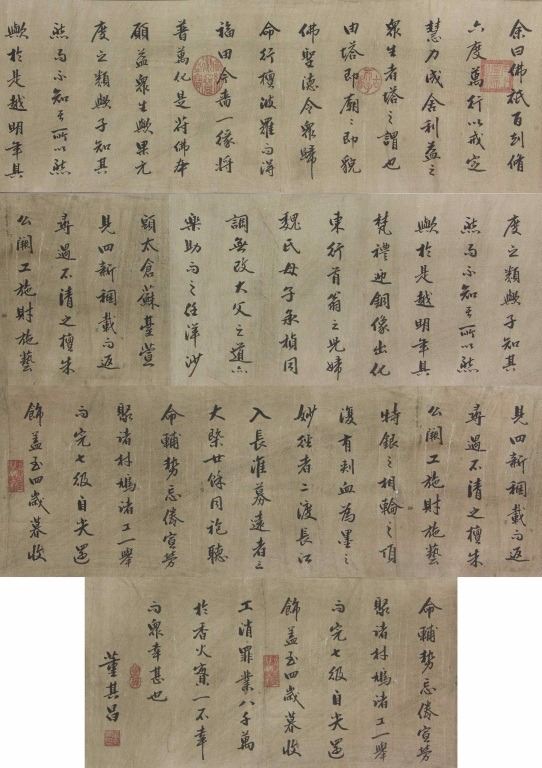 余曰佛祇百刹脩
六度萬行以戒定
慧力成舍利益之
衆生者塔之謂也
由塔即廟之即貌
佛堅德令衆歸
命行檀波羅而得
福田令一緣將
普萬化是符佛本
願益衆生與果尤
度之類與子知其
然而不知其所以然
歟於是越明年具
度之類與子知其
然而不知其所以然
歟於是越明年具
梵禮迎銅像出化
東行首翁之兄婦
魏氏母子禎同
調無改大父之道六
樂助而之任洋沙
頭太倉蘇臺萱
見四新裯載而返
尋過不清之檀朱
公闕工施財施藝
見四新裯載而返
尋過不清之檀朱
公闕工施財施藝
特銀之相輪之頂
復有刺血為墨之
妙者二渡長江
入長淮募遠者三
大檗廿餘同袍聽
命輔勢忘倦宣勞
聚諸材鳩諸工一舉
而完七級自尖還
飾蓋至四歲暮收
命輔勢忘倦宣勞
聚諸材鳩諸工一舉
而完七級自尖還
飾蓋至四歲暮收
工消罪業八千萬
於香火案一不幸
而衆幸甚也
董其昌